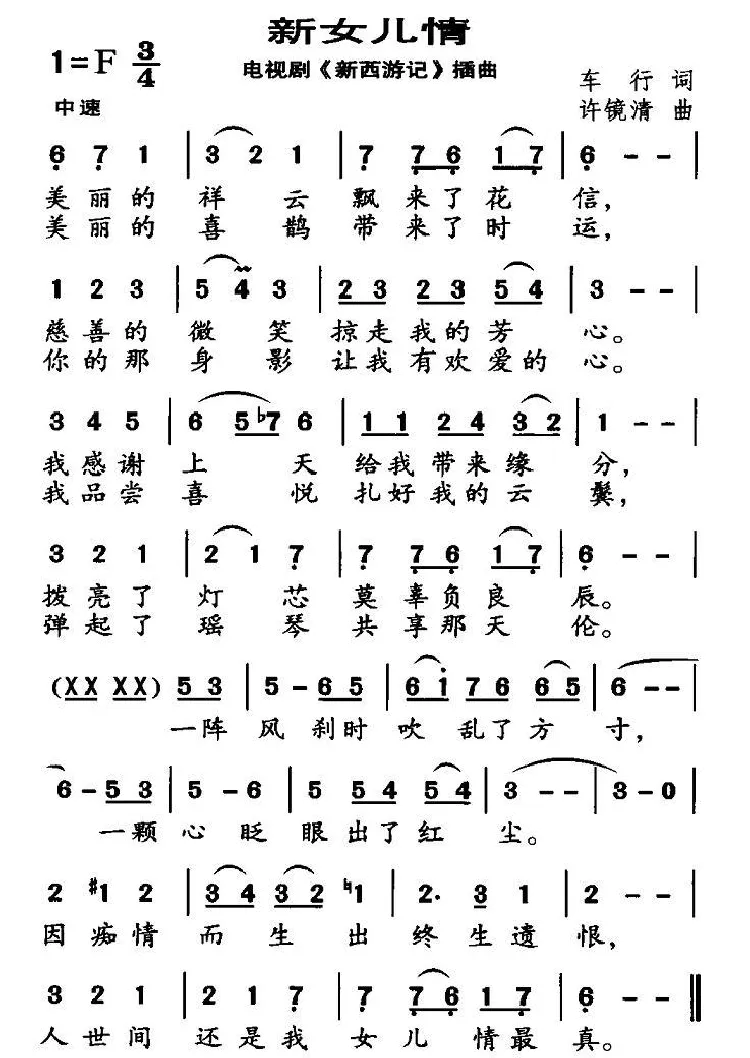 新女儿情
1=F 3/4
电视剧《新西游记》插曲
车行 词
中速
许镜清 曲
6 7 1 | 3 2 1 | 7 7 6 1 7 | 6 - - |
美丽的祥云飘来了花信,
美丽的喜鹊带来了时运,
1 2 3 | 5 4 3 | 2 3 2 3 5 4 | 3 - - |
慈善的微笑掠走我的芳心。
你的那身影让我有欢爱的心。
3 4 5 | 6 5 ♭7 6 | 1 1 2 4 3 2 | 1 - - |
我感谢上天给我带来缘分,
我品尝喜悦扎好我的云鬓,
3 2 1 | 2 1 7 | 7 7 6 1 7 | 6 - - |
拨亮了灯芯莫辜负良辰。
弹起了瑶琴共享那天伦。
(X X X X) 5 3 | 5 - 6 5 | 6 i 7 6 6 5 | 6 - - |
一阵风刹时吹乱了方寸,
6 - 5 3 | 5 - 6 | 5 5 4 5 4 | 3 - - | 3 - 0 |
一颗心眨眼出了红尘。
2 #1 2 | 3 4 3 2 ♮1 | 2· 3 1 | 2 - - |
因痴情而生出终生遗恨,
3 2 1 | 2 1 7 | 7 7 6 1 7 | 6 - - ‖
人世间还是我女儿情最真。